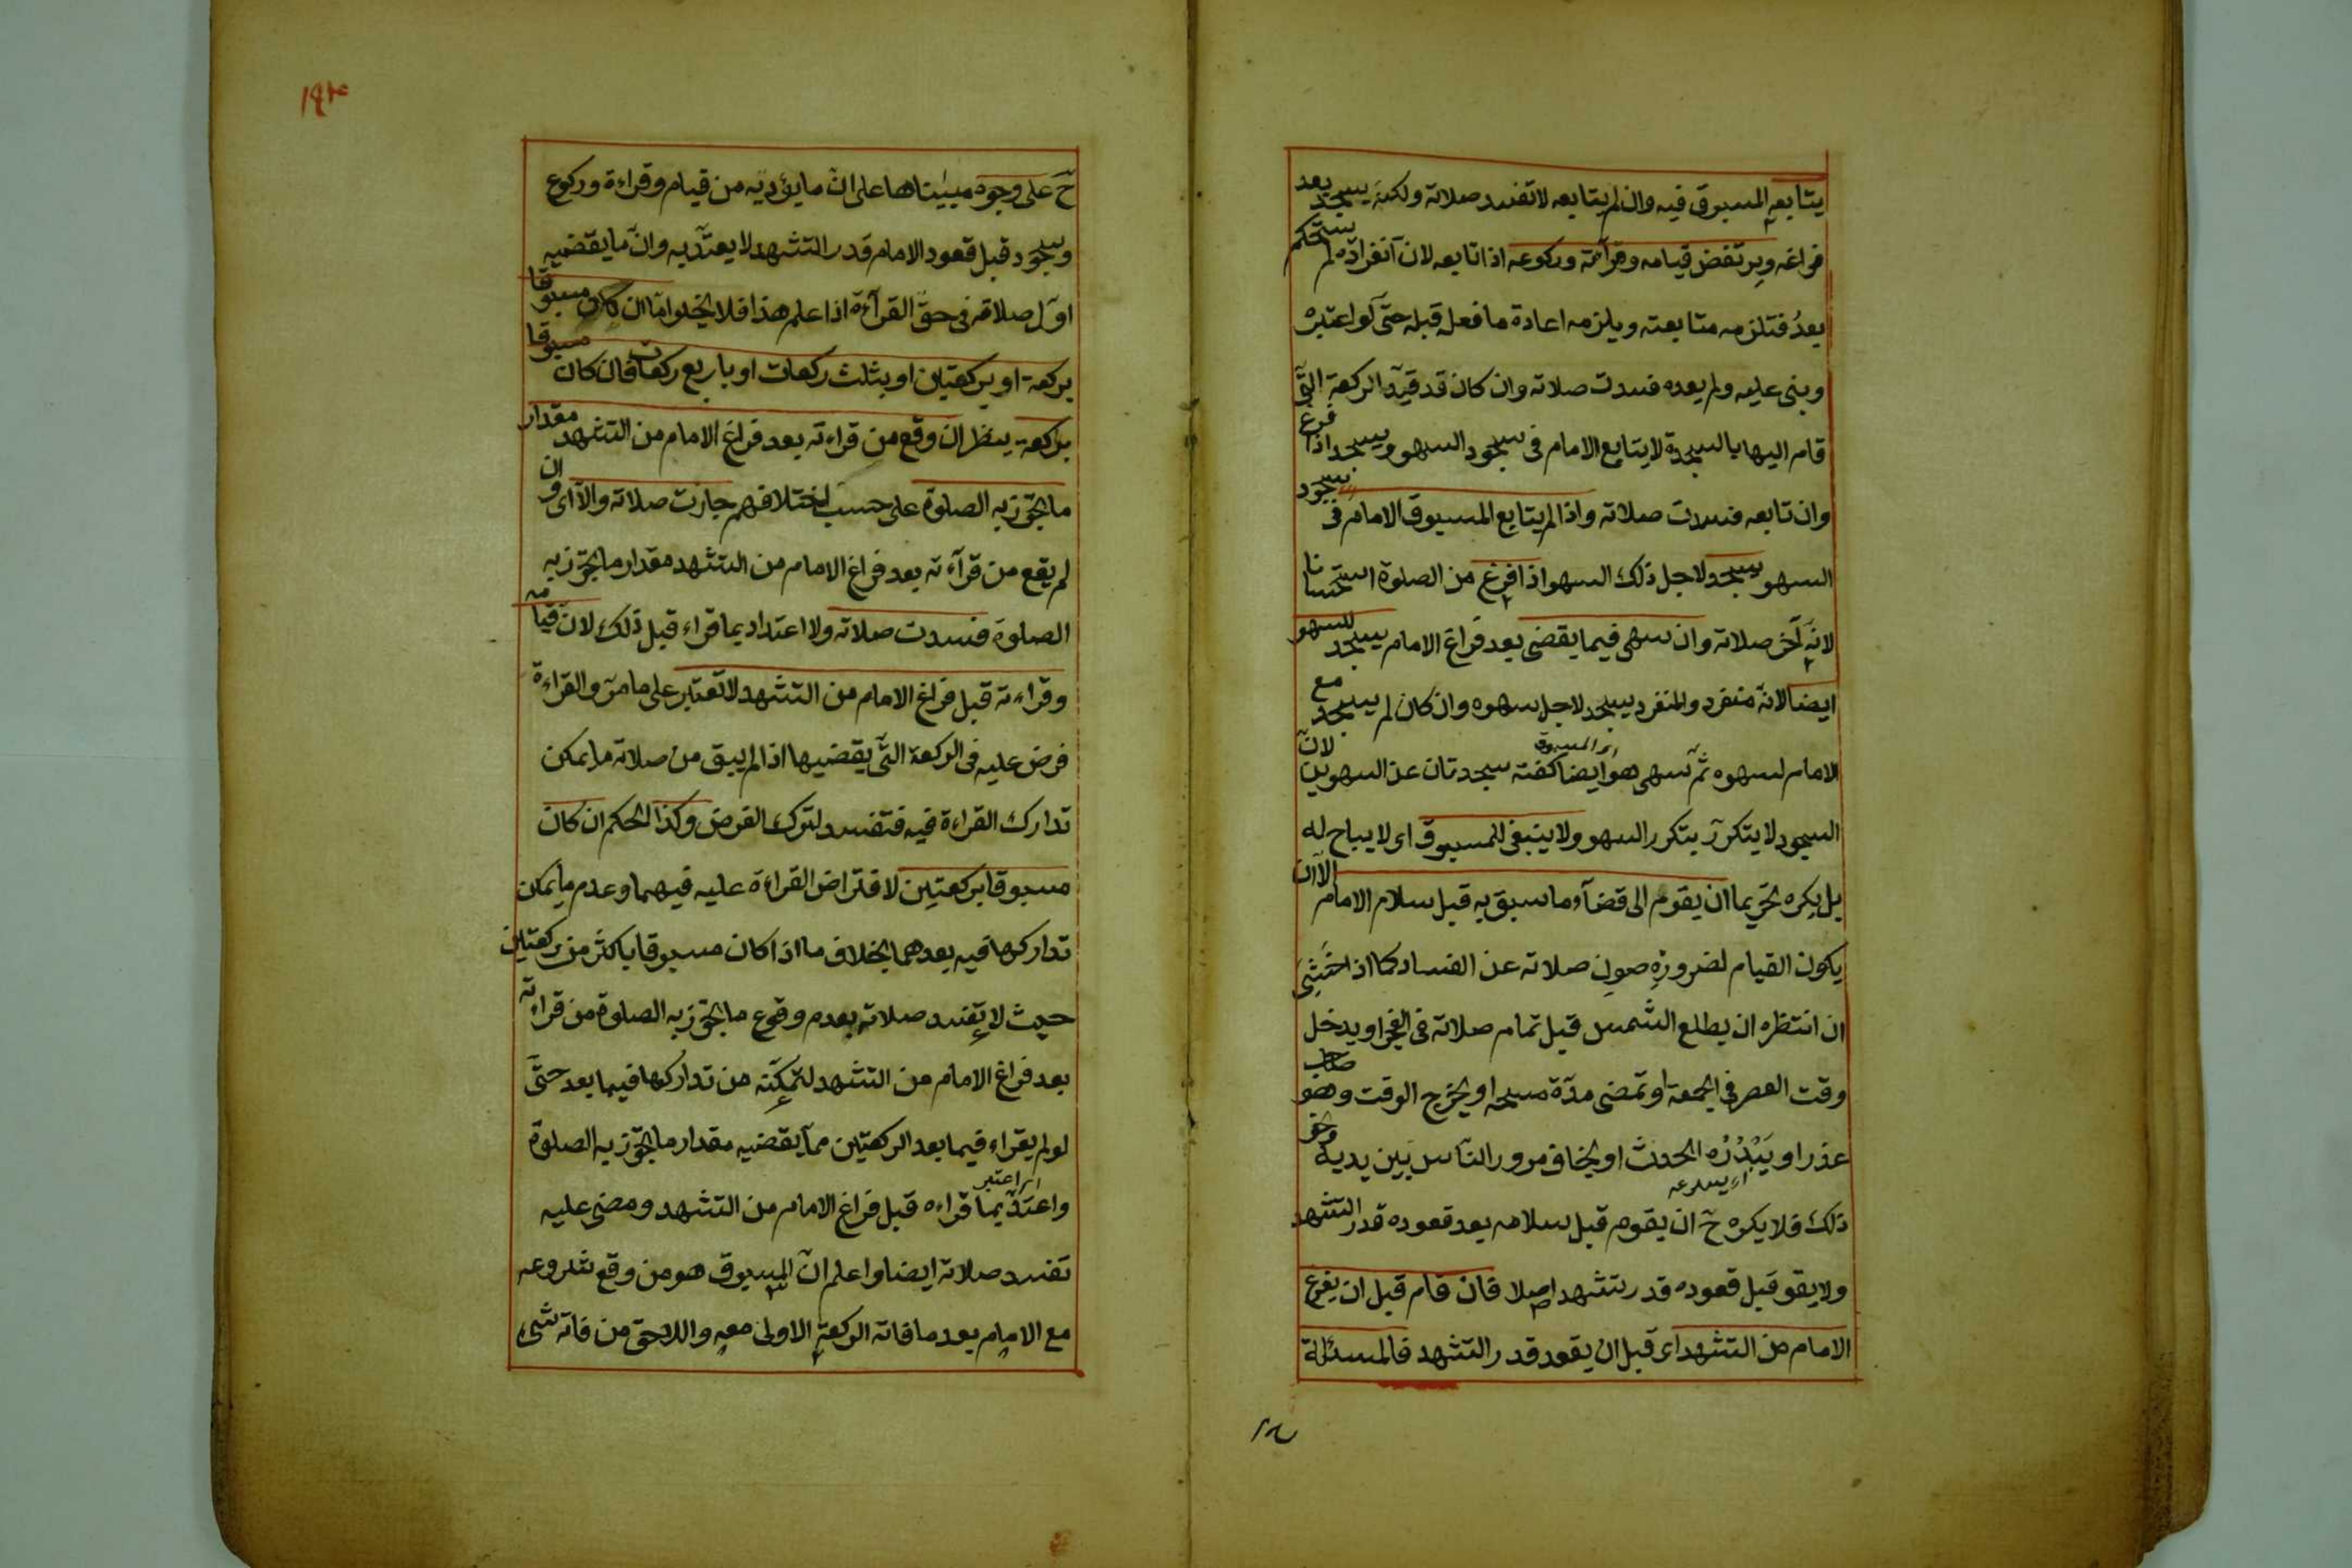 يتابعه المسبوق فيه وان لم يتابعه لا تفسد صلاته ولكنه يسجد بعد
فراغه ويرتفض قيامه وقرآءته وركوعه اذا تابعه لان انفراده لم يستحكم
بعدُ فتلزمه متابعته ويلزمه اعادة ما فعله قبله حتى لو اعتبره
وبنى عليه ولم يعده فسدت صلاته وان كان قد قيّد الركعة التى
قام اليها بالسجدة لا يتابع الامام فى سجود السهو ويسجد اذا فرغ
وان تابعه فسدت صلاته واذا لم يتابع المسبوق الامام فى سجود
السهو يسجد لاجل ذلك السهو اذا فرغ من الصلوة استحسانا
لانه آخر صلاته وان سهى فيما يقضى بعد فراغ الامام يسجد للسهو
ايضا لانه منفرد والمنفرد يسجد لاجل سهوه وان كان لم يسجد مع
اى المسبوق
الامام لسهوه ثم سهى هو ايضا كفته سجدتان عن السهوين لانّ
السجود لا يتكرّر بتكرر السهو ولا ينبغى للمسبوق اى لا يباح له
بل يكره تحريما ان يقوم الى قضآء ما سبق به قبل سلام الامام الا ان
يكون القيام لضرورة صون صلاته عن الفساد كما اذا خشى
ان انتظره ان يطلع الشمس قبل تمام صلاته فى الفجر او يدخل
وقت العصر فى الجمعة او تمضى مدّة مسحه او يخرج الوقت وهو صاحب
عذر او يَبْدُرُه الحدث او يخاف مرور الناس بين يديه ونحو
اى يسرعه
ذلك فلا يكره ح ان يقوم قبل سلامه بعد قعوده قدر التشهد
ولا يقو قبل قعوده قدر تشهد اصلا فان قام قبل ان يفرغ
الامام من التشهد اى قبل ان يقعد قدر التشهد فالمسئلة
١٩٣
ح على وجوه مبيناها على ان ما يؤديه من قيام وقراءة وركوع
وسجود قبل قعود الامام قدر التشهد لا يعتدّ به وان ما يقضيه
اول صلاته فى حق القرآءة اذا علم هذا فلا يخلوا امّا ان كان مسبوقا
بركعة او بركعتين او بثلث ركعات او باربع ركعات فان كان مسبوقا
بركعة ينظر ان وقع من قراءته بعد فراغ الامام من التشهد مقدار
ما تجوز به الصلوة على حسب اختلافهم جازت صلاته والا اى وان
لم يقع من قرآءته بعد فراغ الامام من التشهد مقدار ما تجوز به
الصلوة فسدت صلاته ولا اعتداد بما قراء قبل ذلك لان قيامه
وقراءته قبل فراغ الامام من التشهد لا تعتبر على ما مرّ والقراءة
فرض عليه فى الركعة التى يقضيها اذا لم يبق من صلاته ما يمكن
تدارك القراءة فيه فتفسد لترك الفرض وكذا الحكم ان كان
مسبوقا بركعتين لافتراض القراءة عليه فيهما وعدم ما يمكن
تداركها فيه بعدهما بخلاف ما اذا كان مسبوقا باكثر من ركعتين
حيث لا تفسد صلاته بعدم وقوع ما تجوز به الصلوة من قراءته
بعد فراغ الامام من التشهد لتمكنه من تداركها فيما بعد حتى
لو لم يقراء فيما بعد الركعتين مما يقضيه مقدار ما تجوز به الصلوة
اى اعتبر
واعتدّ بما قراءه قبل فراغ الامام من التشهد ومضى عليه
تفسد صلاته ايضا واعلم انّ المسبوق هو من وقع شروعه
مع الامام بعد ما فاته الركعة الاولى معه واللاحق من فاته شىء